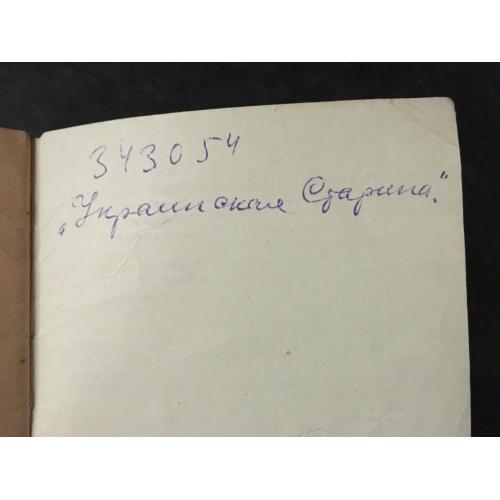 343054
„Украинская Старина."